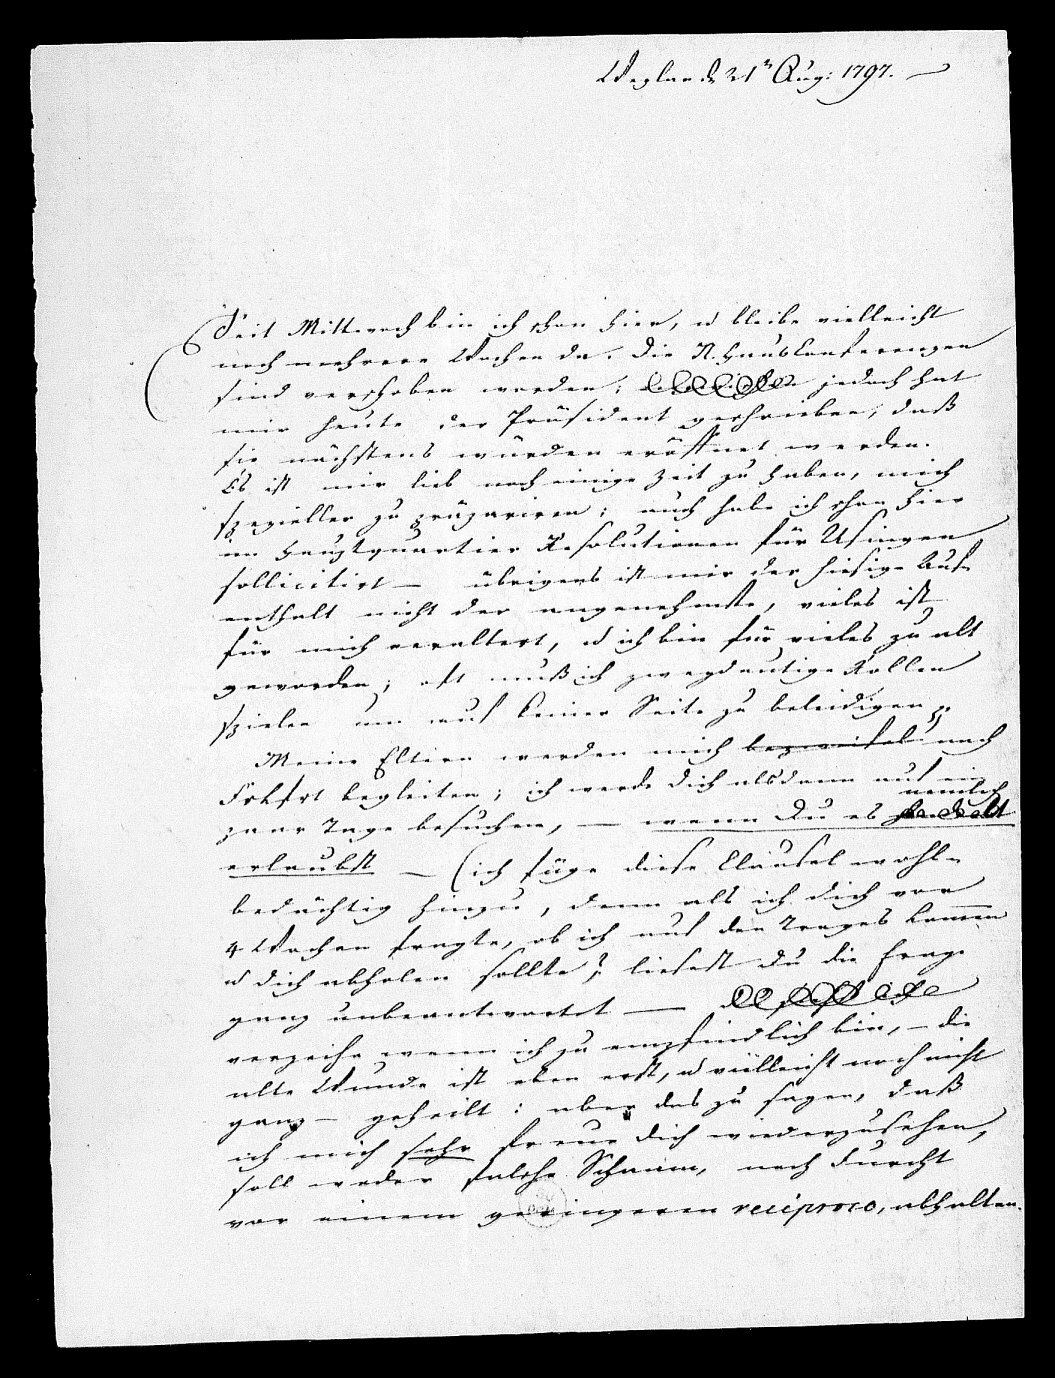 Wezlar d. 21ⁿ Aug: 1797. —
Seit Mittwoch bin ich schon hier, u bleibe vielleicht
noch mehrere Wochen da. Die R. Hauskonferenzen
sind verschoben worden; jedoch hat
mir heute der Präsident geschrieben, daß
sie nächstens würden eröffnet werden.
Es ist mir lieb noch einige Zeit zu haben, mich
spezieller zu präpariren; auch habe ich schon hier
im Hauptquartier Resolutionen für Usingen
sollicitirt — übrigens ist mir der hiesige Auf-
enthalt nicht der angenehmste, vieles ist
für mich veraltert, u ich bin für vieles zu alt
geworden; oft muß ich zweydeutige Rollen
spielen um auf keiner Seite zu beleidigen.
Meine Eltern werden mich bezweifel nach
Frkfrt begleiten; ich werde dich alsdann auf ein
nemlich
paar Tage besuchen, — wenn Du es
erlaubst — (ich füge diese Clausel wohl-
bedächtig hinzu, denn als ich dich vor
4 Wochen fragte, ob ich auf den Trages kommen
u dich abholen sollte? ließest du die Frage
ganz unbeantwortet —
verzeihe wenn ich zu empfindlich bin, — die
alte Wunde ist eben erst, u vielleicht noch nicht
ganz — geheilt: aber das zu sagen, daß
ich mich sehr freue dich wiederzusehen,
soll weder falsche Schaam, noch Furcht
vor einem geringeren reciproco, abhalten.